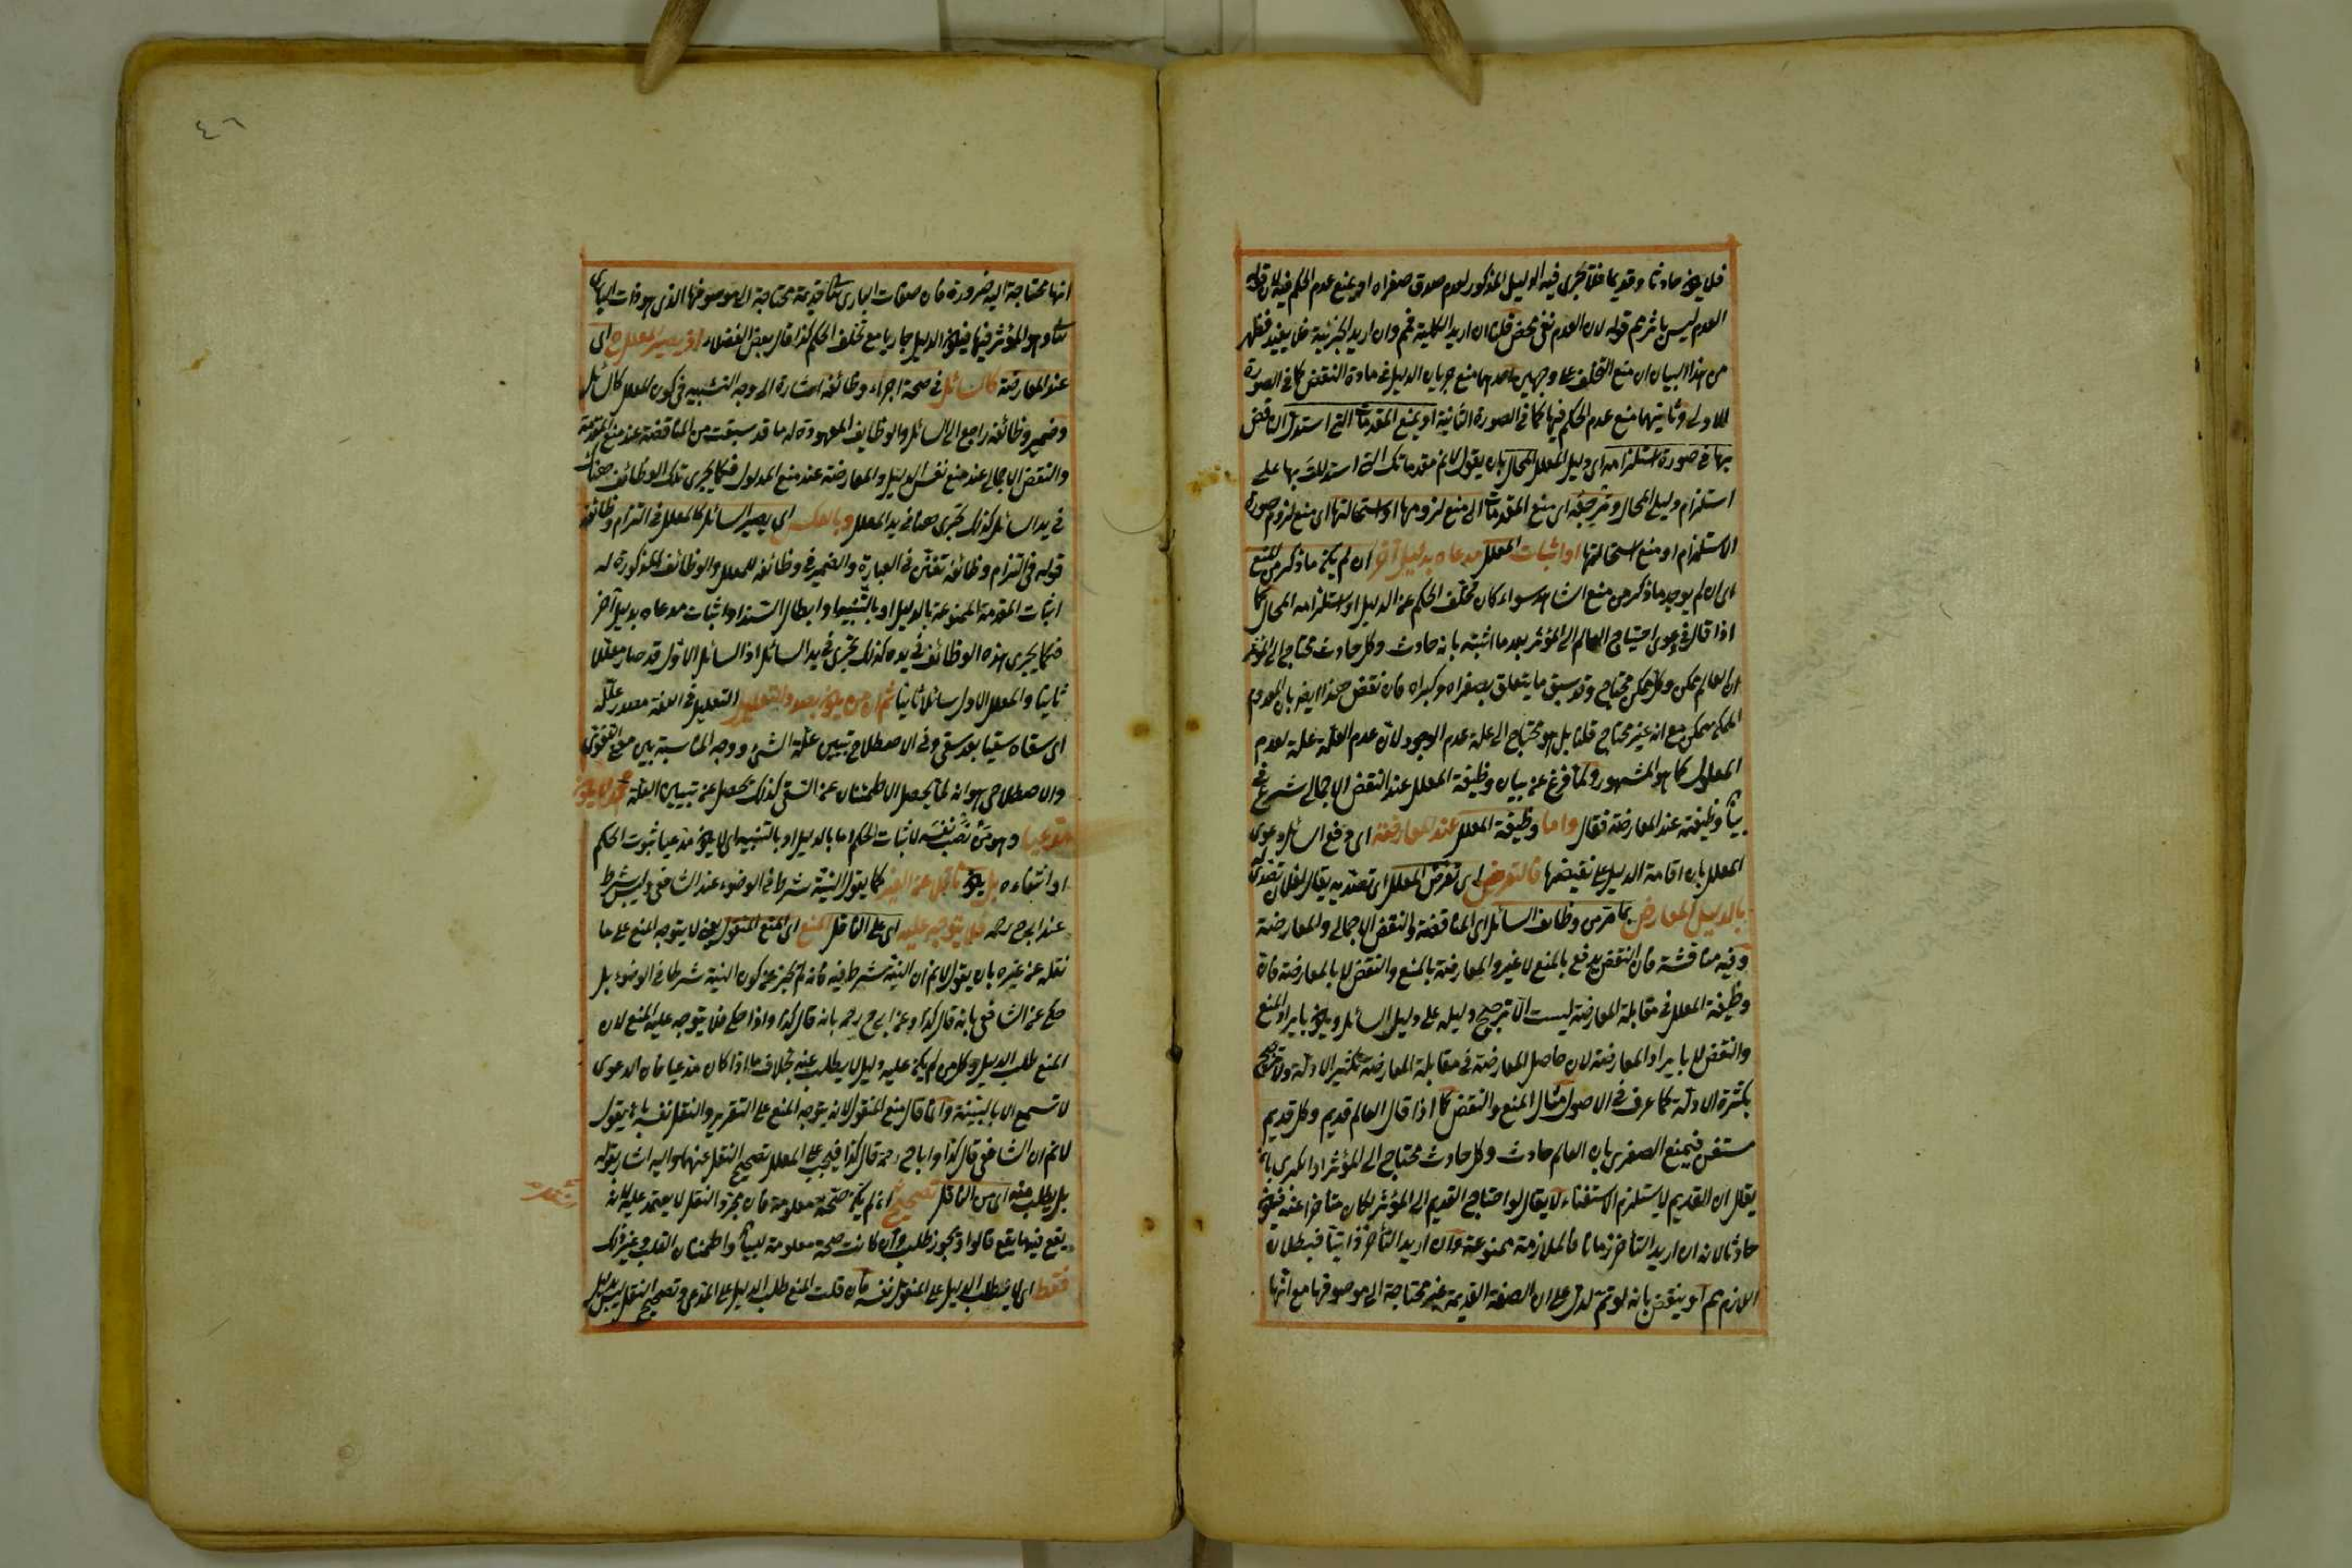 فلا يكون حادثا وقديما فلا يجرى فيه الدليل المذكور لعدم صدق صغراه او يمنع عدم الحكم فيه لان قوله
العدم ليس باثر هم قوله لان العدم نفى محض قلنا ان اريد الكلية فمم وان اريد الجزئية فلا يفيد فظهر
من هذا البيان ان منع التخلف على وجهين احدهما منع جريان الدليل فى مادة النقض كما فى الصورة
الاولى وثانيتهما منع عدم الحكم فيها كما فى الصورة الثانية او يمنع المقدمات التى استدل الناقض
بها فى صورة استلزامه اى دليل المعلل المحال بان يقول لانم مقدماتك التى استدللت بها على
استلزام دليلى المحال ومرجعه اى منع المقدمات الى منع لزومها او استحالتها اى منع لزوم صورة
الاستلزام او منع استحالتها او اثبات المعلل مدعاه بدليل آخر ان لم يكن ما ذكر من المنع
اى ان لم يوجد ما ذكر من منع الشاهد سواء كان تخلف الحكم عن الدليل او استلزامه المحال كما
اذا قال فى دعوى احتياج العالم الى المؤثر بعد ما اثبته بانه حادث وكل حادث محتاج الى المؤثر
ان العالم ممكن وكل ممكن محتاج وقد سبق ما يتعلق بصغراه وكبراه فان نقض هذا ايضا بان المعدوم
الممكن ممكن مع انه غير محتاج قلنا بل هو محتاج الى علة عدم الوجود لان عدم العلة علة لعدم
المعلول كما هو المشهور ولما فرغ عن بيان وظيفة المعلل عند النقض الاجمالى شرع فى
بيان وظيفته عند المعارضة فقال واما وظيفة المعلل عند المعارضة اى دفع السائل دعوى
المعلل بان اقامة الدليل على نقيضها فالتعرض اى تعرض المعلل اى تصديه يقال لفلان تصدى له
بالدليل المعارض بما مر من وظائف السائل اى المناقضة والنقض الاجمالى والمعارضة
وفيه مناقشة فان النقض يدفع بالمنع لا غير والمعارضة بالمنع والنقض لا بالمعارضة فان
وظيفة المعلل فى مقابلة المعارضة ليست الا ترجيح دليله على دليل السائل ويكون بايراد المنع
والنقض لا بايراد المعارضة لان حاصل المعارضة فى مقابلة المعارضة تكثير الادلة ولا ترجيح
بكثرة الادلة كما عرف فى الاصول مثال المنع والنقض كما اذا قال العالم قديم وكل قديم
مستغن فيمنع الصغرى بان العالم حادث وكل حادث محتاج الى المؤثر او الكبرى بان
يقال ان القديم لا يستلزم الاستغناء لا يقال لو احتاج القديم الى المؤثر لكان متأخرا عنه فيكون
حادثا لانه ان اريد التأخر زمانا فالملازمة ممنوعة وان اريد التأخر ذاتيا فبطلان
اللازم هم او ينقض بانه لو تم لدل على ان الصفة القديمة غير محتاجة الى موصوفها مع انها
٤٦
انها محتاجة اليه ضرورة فان صفات البارى تعا قديمة محتاجة الى موصوفها الذى هو ذات البارى
تعا وهو المؤثر فيها فيكون الدليل جاريا مع تخلف الحكم كذا قال بعض الفضلاء اذ يصير المعلل ح اى
عند المعارضة كالسائل فى صحة اجراء وظائفه اشارة الى وجه التشبيه فى كون المعلل كالسائل
وضمير وظائفه راجع الى السائل والوظايف المعهودة له ما قد سبقت من المناقضة عند منع المقدمة
والنقض الاجمالى عند منع نفس الدليل والمعارضة عند منع المدلول فكما يجرى تلك الوظائف هناك
فى يد السائل كذلك يجرى هنا فى يد المعلل وبالعكس اى يصير السائل كالمعلل فى التزام وظائفه
قوله فى التزام وظائفه تفنن فى العبارة والضمير فى وظائفه للمعلل والوظائف المذكورة له
اثبات المقدمة الممنوعة بالدليل او بالتنبيه او ابطال السند او اثبات مدعاه بدليل آخر
فكما يجرى هذه الوظائف فى يده كذلك يجرى فى يد السائل اذ السائل الاول قد صار معللا
ثانيا والمعلل الاول سائلا ثانيا ثم ان من يكون بصدد التعليل التعليل فى اللغة مصدر علله
اى سقاه سقيا بعد سقى وفى الاصطلاح تبيين علة الشئ ووجه المناسبة بين معنى اللغوى
والاصطلاحى هو انه كما يحصل الاطمئنان عن السقى كذلك يحصل عن تبيين العلة قد لا يكون
مدعيا وهو من نصب نفسه لاثبات الحكم اما بالدليل او بالتنبيه اى لا يكون مدعيا ثبوت الحكم
او انتفاءه بل يكون ناقلا عن الغير كما يقول النية شرط فى الوضوء عند الشافعى وليس بشرط
عند ابى ح رحمه فلا يتوجه عليه اى على الناقل المنع اى المنع المنقول يعنى لا يتوجه المنع على ما
نقله عن غيره بان يقول لانم ان النية شرط فيه فانه لم يخبر عن كون النية شرطا فى الوضوء بل
حكى عن الشافعى بانه قال كذا وعن ابى ح رحمه بانه قال كذا واذا حكى فلا يتوجه عليه المنع لان
المنع طلب الدليل وكل من لم يكن عليه دليل لا يطلب عنه بخلاف ما اذا كان مدعيا فان الدعوى
لا تسمع الا بالبينة وانما قال منع المنقول لانه يتوجه المنع على التقرير والنقل نفسه بان يقول
لانم ان الشافعى قال كذا وابا ح رحمه قال كذا فيجب على المعلل تصحيح النقل عنهما واليه اشار بقوله
بل يطلب منه اى من الناقل تصحيح ان لم يكن صحته معلومة فان مجرد النقل لا يعتمد عليه لانه
يقع فيهما يقع قالوا وقد يجوز طلب وان كانت صحة معلومة لبيان واطمئنان القلب وغير ذلك
فقط اى لا يطلب الدليل على المنقول نفسه فان قلت المنع طلب الدليل على المدعى وتصحيح النقل ليس بدليل